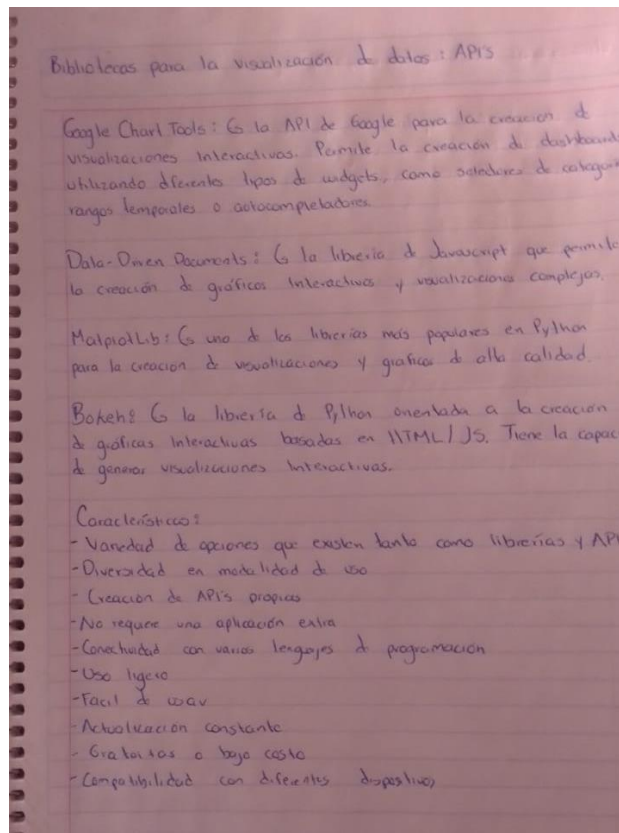 Bibliotecas para la visualización de datos: API's
Google Chart Tools: Es la API de Google para la creación de
visualizaciones interactivas. Permite la creación de dashboards
utilizando diferentes tipos de widgets, como selectores de categoría
rangos temporales o autocompletadores.
Data-Driven Documents: Es la librería de Javascript que permite
la creación de gráficos interactivos y visualizaciones complejas.
MatplotLib: Es uno de las librerías más populares en Python
para la creación de visualizaciones y graficos de alta calidad.
Bokeh: Es la librería de Python orientada a la creación
de gráficas interactivas basadas en HTML/JS. Tiene la capac
de generar visualizaciones interactivas.
Características:
- Variedad de opciones que existen tanto como librerías y API
- Diversidad en modalidad de uso
- Creación de API's propias
- No requiere una aplicación extra
- Conectividad con varios lenguajes de programación
- Uso ligero
- Facil de usar
- Actualización constante
- Gratuitas o bajo costo
- Compatibilidad con diferentes dispositivos